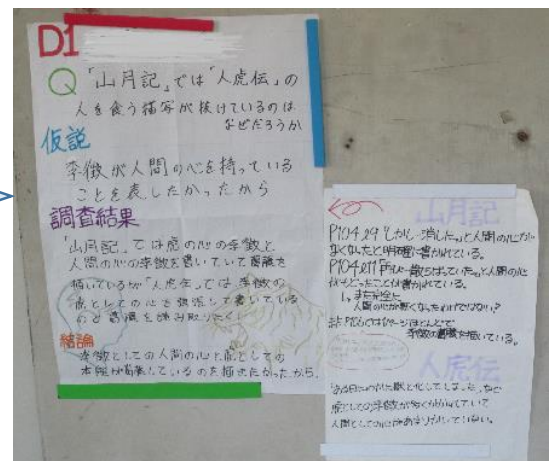 D1
Q 「山月記」では「人虎伝」の
人を食う描写が抜けているのは
なぜだろうか
仮説
李徴が人間の心を持っている
ことを表したかったから
調査結果
「山月記」では虎の心の李徴と
人間の心の李徴を書いていて葛藤を
描いているが「人虎伝」では李徴の
虎としての心を強調して書いている
ので葛藤を読み取りにくい
結論
李徴としての人間の心と虎としての
本能が葛藤しているのを描きたかったから。
山月記
P104.l9「しかし、消した。」と人間の心が
なくなったと明確に書かれている。
P104.l11「再び 散らばっていた。」と人間の心
がもどったことが書かれている。
↳まだ完全に
人間の心が無くなったわけではない?
李徴の葛藤を描いている。
人虎伝
虎としての李徴が
人間としての心があまりかいていない。